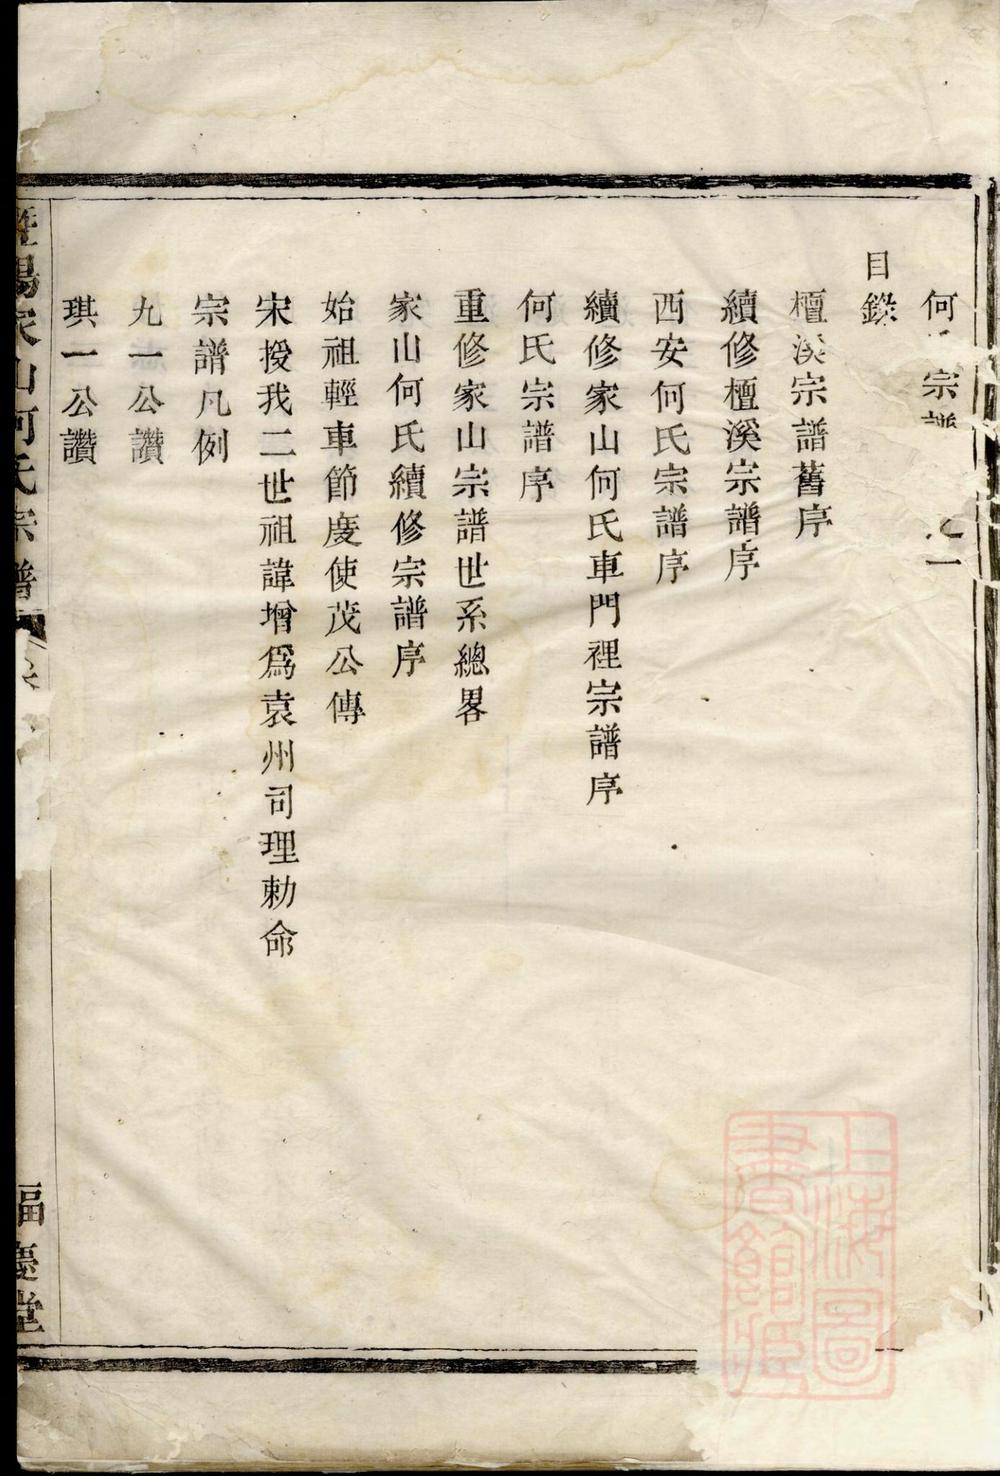 何氏宗譜 之一
目錄
檀溪宗譜舊序
續修檀溪宗譜序
西安何氏宗譜序
續修家山何氏車門裡宗譜序
何氏宗譜序
重修家山宗譜世系總畧
家山何氏續修宗譜序
始祖輕車節度使茂公傳
宋授我二世祖諱增爲袁州司理勅命
宗譜凡例
九一公讚
琪一公讚
暨陽家山何氏宗譜
福慶堂
上海圖
書館藏